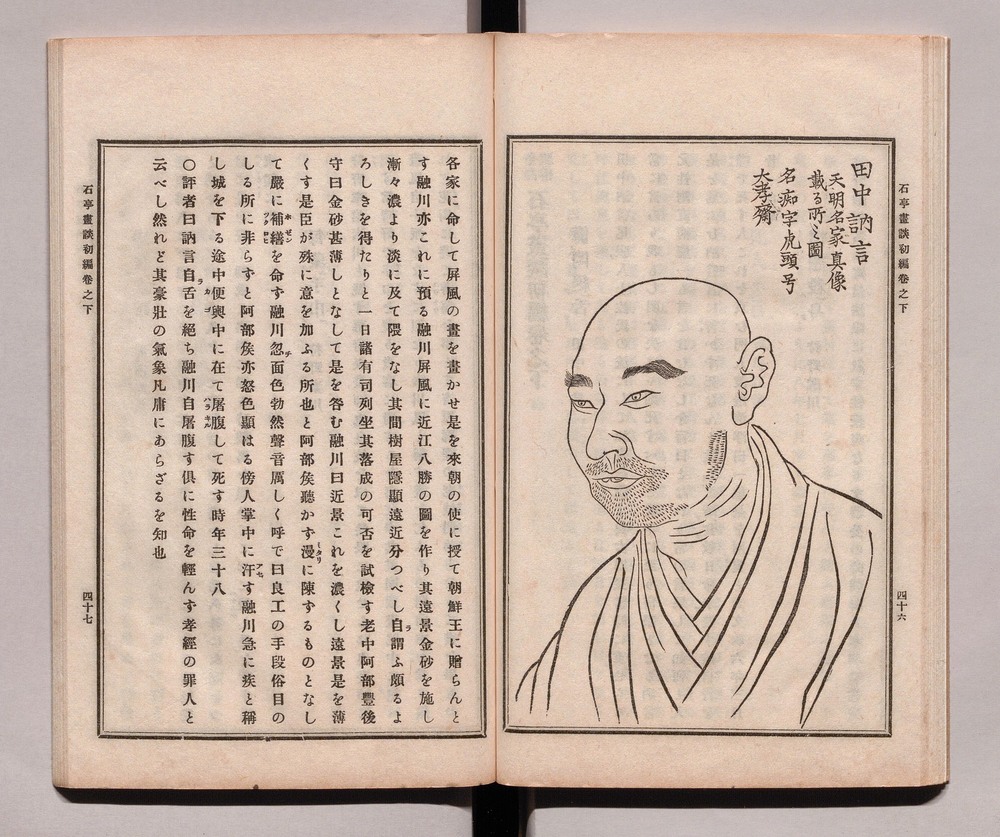 石亭畫談初編卷之下
四十六
田中訥言
天明名家真像
載る所之圖
名痴字虎頭号
大孝齋
各家に命して屏風の畫を畫かせ是を來朝の使に授て朝鮮王に贈らんと
す融川亦これに預る融川屏風に近江八勝の圖を作り其遠景金砂を施し
漸々濃より淡に及て隈をなし其間樹屋隱顯遠近分つべし自謂ふ頗るよ
ろしきを得たりと一日諸有司列坐其落成の可否を試檢す老中阿部豐後
守曰金砂甚薄しとなして是を咎む融川曰近景これを濃くし遠景是を薄
くす是臣が殊に意を加ふる所也と阿部侯聽かず漫に陳するものとなし
て嚴に補繕を命ず融川忽面色勃然聲音厲しく呼で曰良工の手段俗目の
しる所に非らずと阿部侯亦怒色顯はる傍人掌中に汗す融川急に疾と稱
し城を下る途中便輿中に在て屠腹して死す時年三十八
〇評者曰訥言自舌を絶ち融川自屠腹す俱に性命を輕んず孝經の罪人と
云べし然れど其豪壯の氣象凡庸にあらざるを知也
石亭畫談初編卷之下
四十七